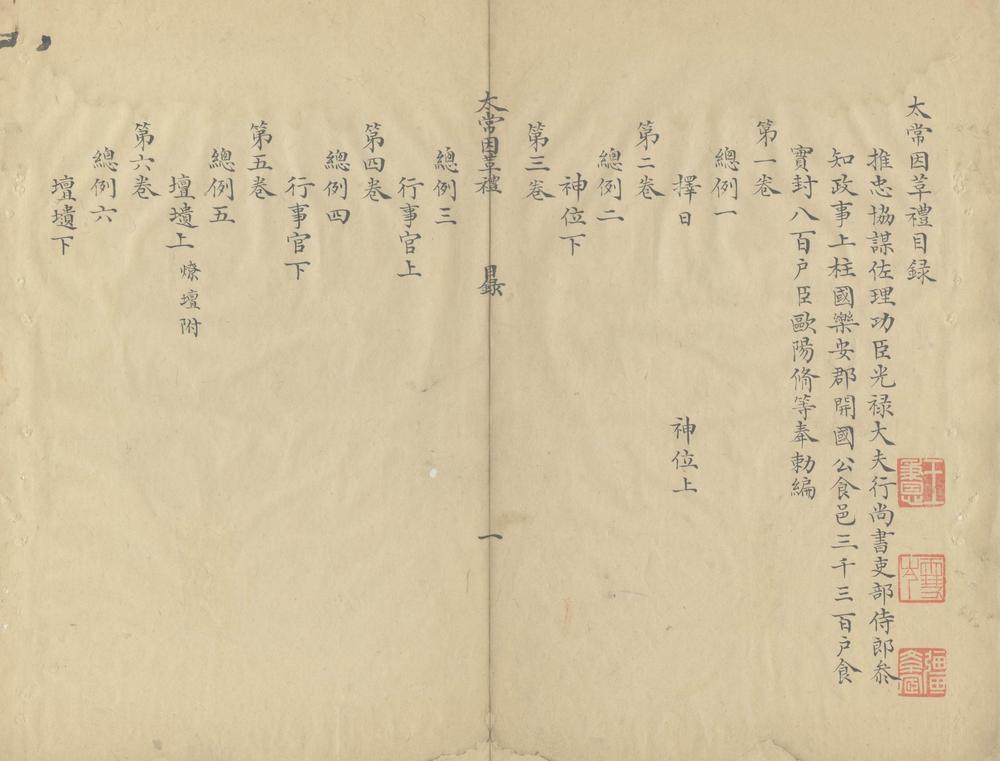 太常因革禮目録
推忠協謀佐理功臣光禄大夫行尚書吏部侍郎叅
知政事上柱國樂安郡開國公食邑三千三百户食
實封八百户臣歐陽脩等奉勅編
第一卷
總例一
擇日 神位上
第二卷
總例二
神位下
第三卷
太常因革禮 目録 一
總例三
行事官上
第四卷
總例四
行事官下
第五卷
總例五
壇壝上 燎壇附
第六卷
總例六
壇壝下